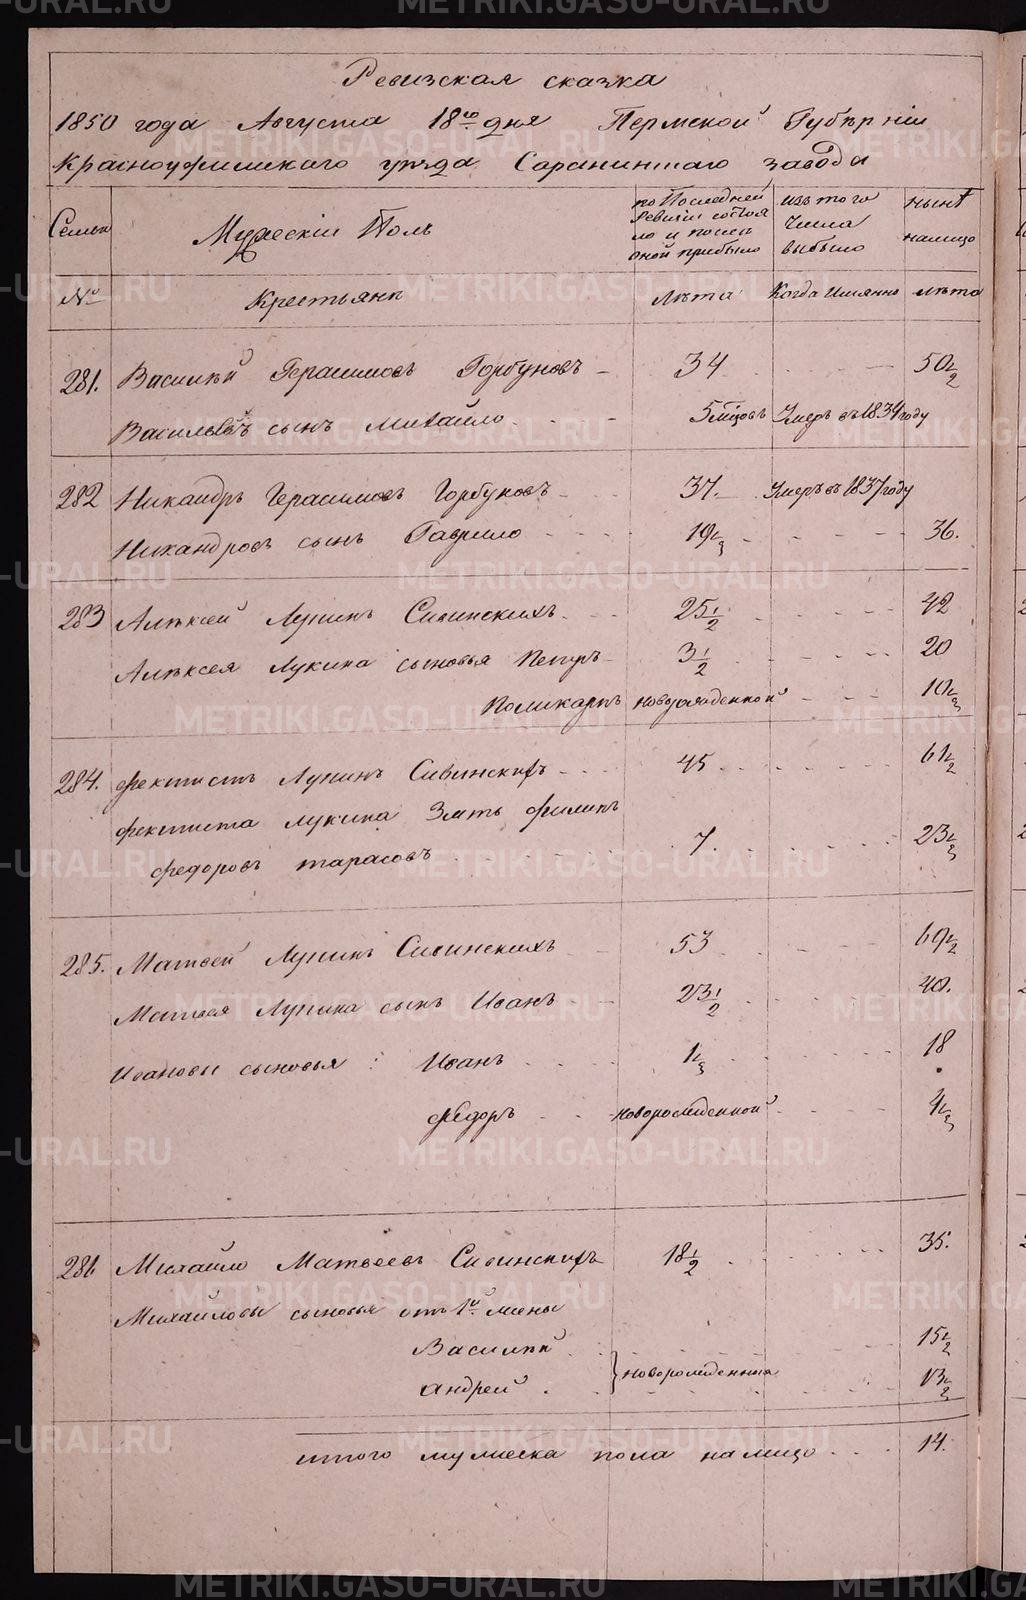 Ревизская сказка
1850 года Августа 18го дня Пермской Губѣрніи
Красноуфимскаго уѣзда Саранинскаго завода
Семьи
Мужескій Полъ
по Последней Ревизіи состоя ло и после оной прибыло
изъ того Числа выбыло
нынѣ налицо
№
Крестьяни
Лѣта
Когда Имянно
лѣта
281. Василій Герасимовъ Горбуновъ 34 50 1/2
Васильевъ сынъ Михайло 5 мцовъ Умеръ въ 1834 году
282 Никандръ Герасимовъ Горбуновъ 37. Умеръ въ 1837 году
Никандровъ сынъ Гаврило 19 1/2 36.
283 Алѣксей Лукинъ Сивинскихъ 25 1/2 42
Алѣксея Лукина сыновья Петръ 3 1/2 20
Поликарпъ новорожденной 10 1/2
284. Фектистъ Лукинъ Сивинскихъ 45 61 1/2
Фектиста Лукина Зять Филипъ
Федоровъ Тарасовъ 7. 23 1/2
285. Матвей Лукинъ Сивинскихъ 53 69 1/2
Матвея Лукина сынъ Иванъ 23 1/2 40.
Ивановы сыновья: Иванъ 1 1/2 18
Федоръ новорожденной 4 1/2
286 Михайло Матвеевъ Сивинскихъ 18 1/2 35.
Михайловы сыновья отъ 1й жены
Василій 15 1/2
новорожденныя
Андрей 13 1/2
итого мужеска пола налицо 14.
METRIKI.GASO-URAL.RU